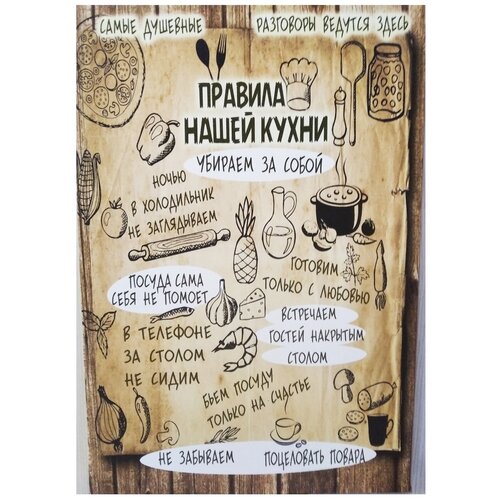 САМЫЕ ДУШЕВНЫЕ РАЗГОВОРЫ ВЕДУТСЯ ЗДЕСЬ
ПРАВИЛА
НАШЕЙ КУХНИ
УБИРАЕМ ЗА СОБОЙ
НОЧЬЮ
В ХОЛОДИЛЬНИК
НЕ ЗАГЛЯДЫВАЕМ
ГОТОВИМ
ТОЛЬКО С ЛЮБОВЬЮ
ПОСУДА САМА
СЕБЯ НЕ ПОМОЕТ
ВСТРЕЧАЕМ
ГОСТЕЙ НАКРЫТЫМ
СТОЛОМ
В ТЕЛЕФОНЕ
ЗА СТОЛОМ
НЕ СИДИМ
БЬЕМ ПОСУДУ
ТОЛЬКО НА СЧАСТЬЕ
НЕ ЗАБЫВАЕМ ПОЦЕЛОВАТЬ ПОВАРА